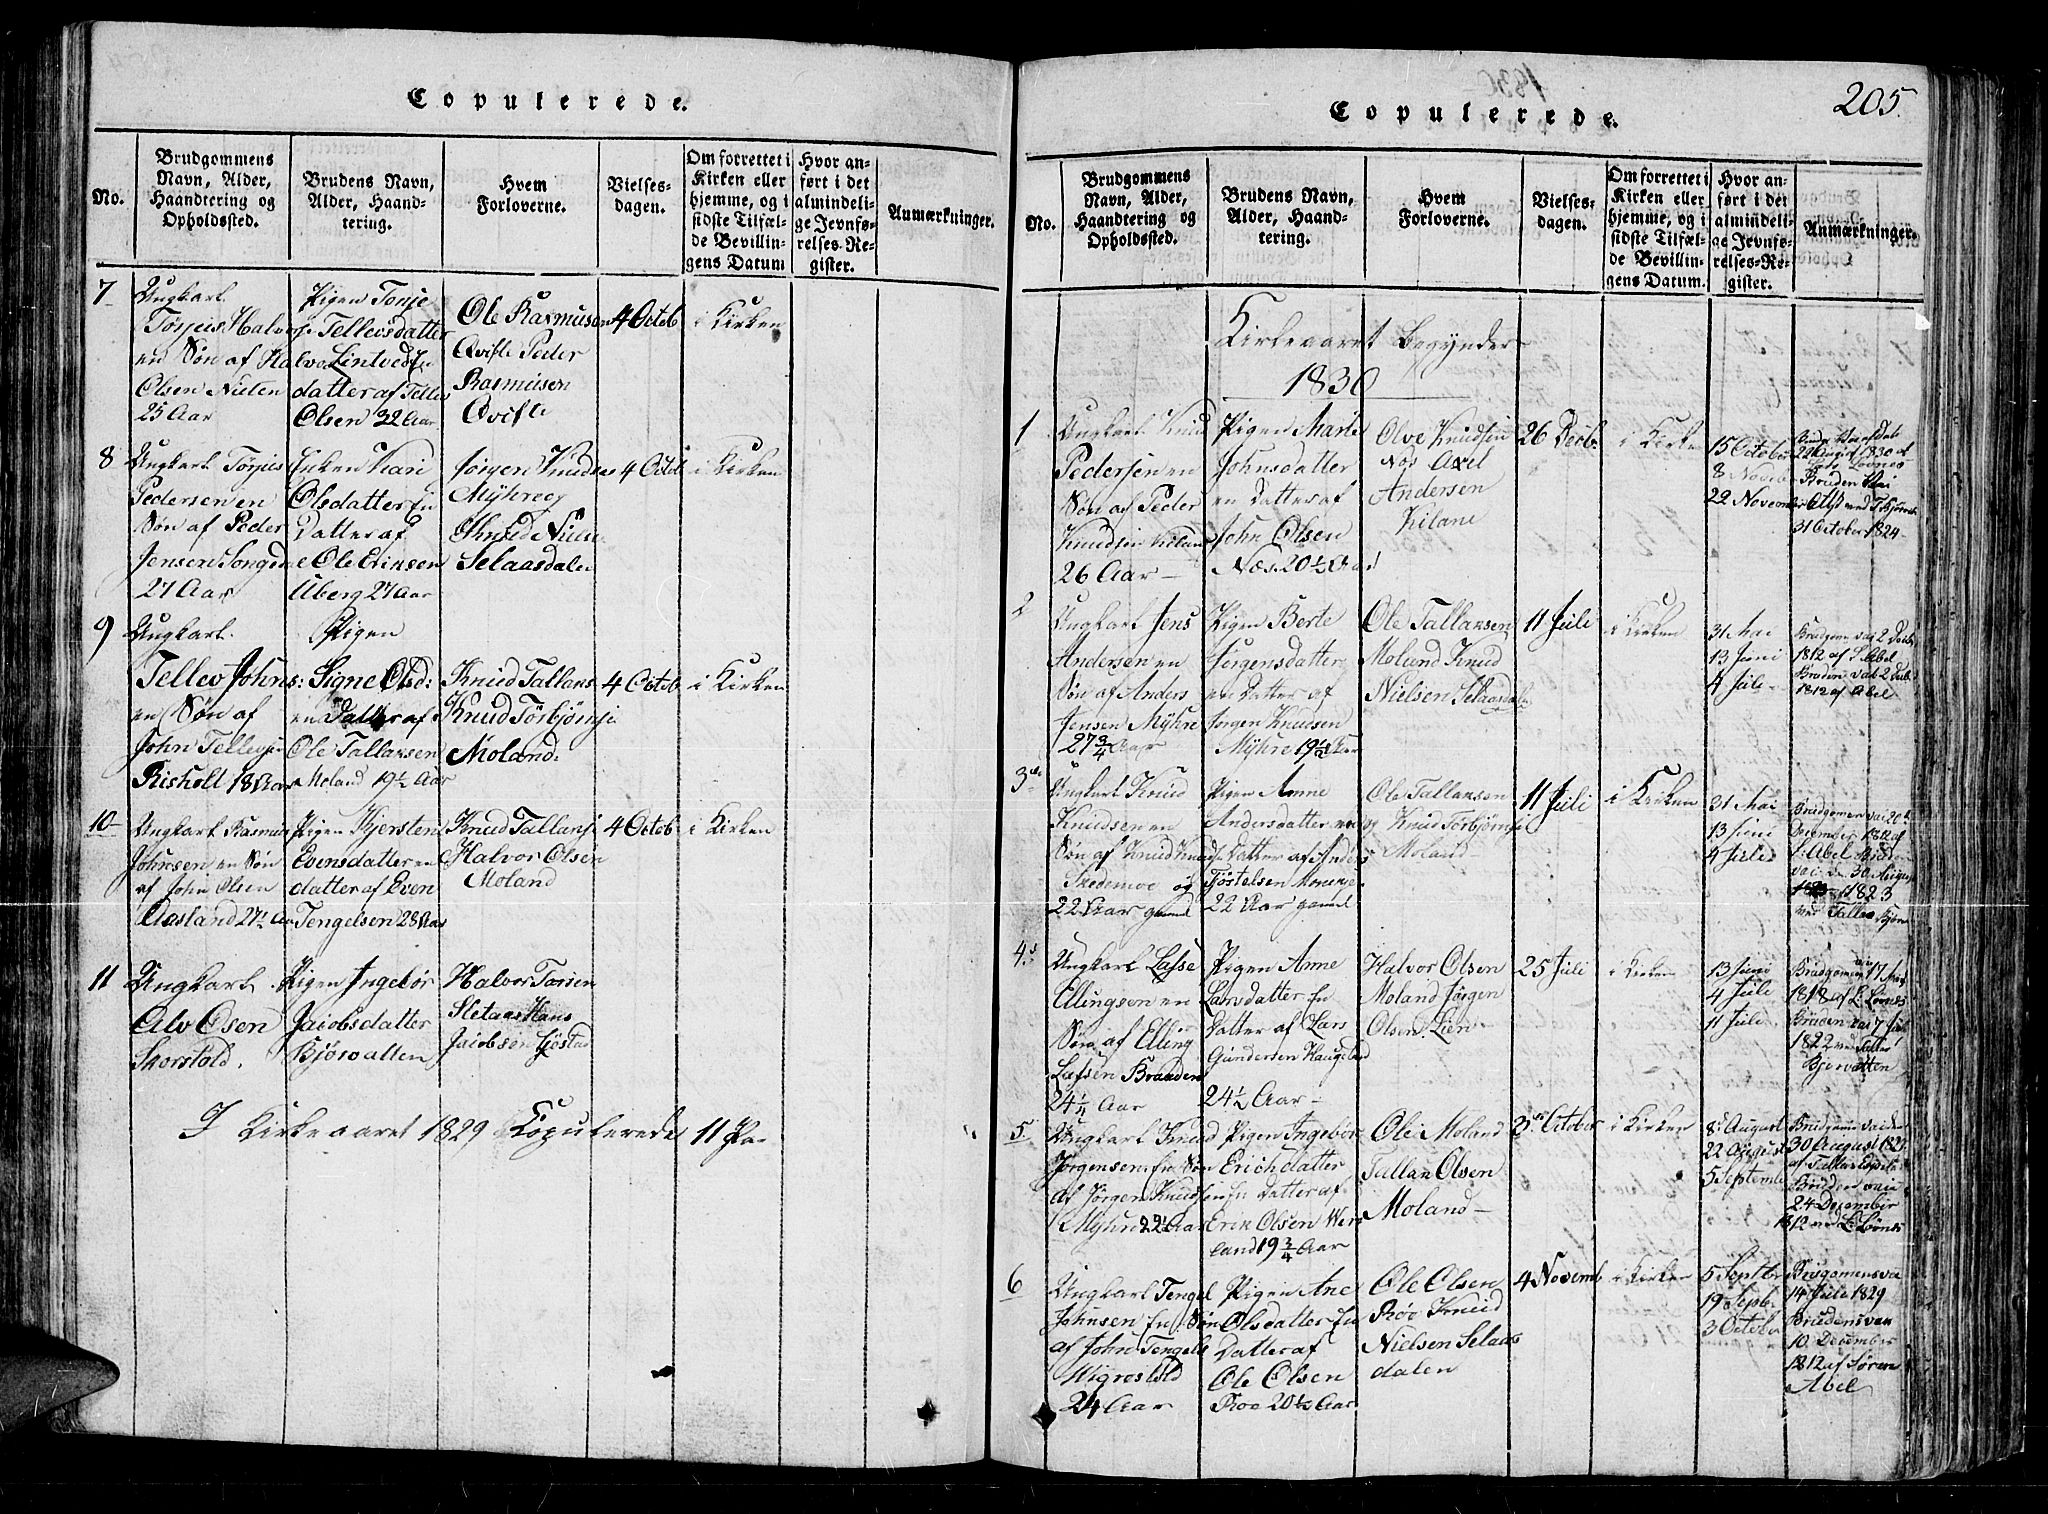 Copulerede.
No.
Brudgommens
Navn, Alder,
Haandtering og
Opholdssted.
Brudens Navn,
Alder, Haand-
tering.
Hvem
Forloverne.
Vielses-
dagen.
Om forrettet i
Kirken eller
hjemme, og i
sidste Tilfæl-
de Bevillin-
gens Datum
Hvor an-
ført i det
almindeli-
ge Jevnfø-
relses-Re-
gister.
Anmærkninger.
7
Ungkarl
Torjus Halvor
en Søn af Halvor
Olsen Nieten
25 Aar
Pigen Tonje
Tellevsdatter
Lintved
datter af Tellev
Olsen 32 Aar
Ole Rasmusen
Qvifte Peder
Rasmusen
Qvifte
4 Octob
i Kirken
8
Ungkarl Torjus
Pedersen en
Søn af Peder
Jensen Songed
27 Aar
Enken Kari
Olsdatter En
Datter af
Ole Erinsen
Uberg 27 Aar
Jørgen Knudsen
Myhre og
Knud Nielsen
Selaasdalen
4 Octob
i Kirken
9
Ungkarl
Tellev Johns:
en Søn af
John Tellevsen
Risholt 18 Aar
Pigen
Signe Olsd:
en Datter af
Ole Tallaksen
Moland 19½ Aar
Knud Tallaks
Knud Torbjørnsen
Moland:
4 Octob
i Kirken
10
Ungkarl Rasmus
Johnsen en Søn
af John Olsen
Aasland 27½ Aar
Pigen Kjersten
Evensdatter en
datter af Even
Tengelsen 28 Aar
Knud Tallaks
Halvor Olsen
Moland
4 Octob
i Kirken
11
Ungkarl
Alv Olsen
Skorstøld.
Pigen Ingebør
Jacobsdatter
Bjørvatten
Halvor Torsen
Sletaas Hans
Jacobsen Tjøstad
I Kirkeaaret 1829 Kopulerede 11 Par
1830
205.
Copulerede.
No.
Brudgommens
Navn, Alder,
Haandtering og
Opholdssted.
Brudens Navn,
Alder, Haand-
tering.
Hvem
Forloverne.
Vielses-
dagen.
Om forrettet i
Kirken eller
hjemme, og i
sidste Tilfæl-
de Bevillin-
gens Datum.
Hvor an-
ført i det
almindeli-
ge Jevnfø-
relses-Re-
gister.
Anmærkninger.
Kirkeaaret begynder
1830
1
Ungkarl Knud
Pedersen en
Søn af Peder
Knudsen Kilane
26 Aar
Pigen Marte
Johnsdatter
en Datter af
John Olsen
Næs. 20½ Aar
Olve Knudsen
Næs Axel
Andersen
Kilane
26 Decb.
i Kirken
15 October
8 Novemb
22 November
31 October 1824
2
Ungkarl Jens
Andersen en
Søn af Anders
Jensen Myhre
27¾ Aar
Pigen Berte
Jørgensdatter
en Datter af
Jørgen Knudsen
Myhre 19½ Aar
Ole Tallaksen
Moland Knud
Nielsen Selaasdalen
11 Juli
i Kirken
31 Mai
13 Juni
4 Juli
Brudgom vac 2 Decb
1812 af S. Abel
Bruden vac 2 Juli
1812 af Abel
3
Ungkarl Knud
Knudsen en
Søn af Knud Knuds
Skedemoe og
22 Aar gaml
Pigen Anne
Andersdatter en
Datter af Anders
Tjøstelsen Monenge
22 Aar gaml
Ole Tallaksen
og Knud Torbjørnsen
Moland
11 Juli
i Kirken
31 Mai
13 Juni
4 Juli
Brudgomen vac 20
December 1812 af
S. Abel Bruden
vac den 30 August
1823
ved Tallev Bjørn
4
Ungkarl Lasse
Ellingsen en
Søn af Elling
Lassen Braaden
24¼ Aar
Pigen Anne
Larsdatter En
Datter af Lars
Gundersen Haugeland
24½ Aar
Halvor Olsen
Moland Jørgen
Olsen Lien
25 Juli
i Kirken
13 Juni
4 Juli
11 Juli
Brudgomen vac 17 Mai
1818 af L: Lønes
Bruden vac 7 Juli
1822 ved Tallev
Bjervatten
5
Ungkarl Knud
Jørgensen En Søn
af Jørgen Knudsen
Myhre 22½ Aar
Pigen Ingebør
Erichdatter
En Datter af
Erik Olsen Wers
land 19¾ Aar
Ole Moland
Tallak Olsen
Moland
3 October
i Kirken
8 August
22 August
5 Septemb
Brudgom vac den
30 August 182
Bruden vac
24 December
1812 ved L: Lønes
6
Ungkarl Tengel
Johnsen En Søn
af John Tengels
Wigrostøld
24 Aar
Pigen Ane
Olsdatter En
Datter af
Ole Olsen
Roe 20½ Aar
Ole Olsen
Røe Knud
Nielsen Selaas
dalen
4 Novemb
i Kirken
5 Septbr
19 Septb
3 October
Brudgomens vac
14 Juli 1829
Brudens vac
10 December
1812 af Søren
Abel